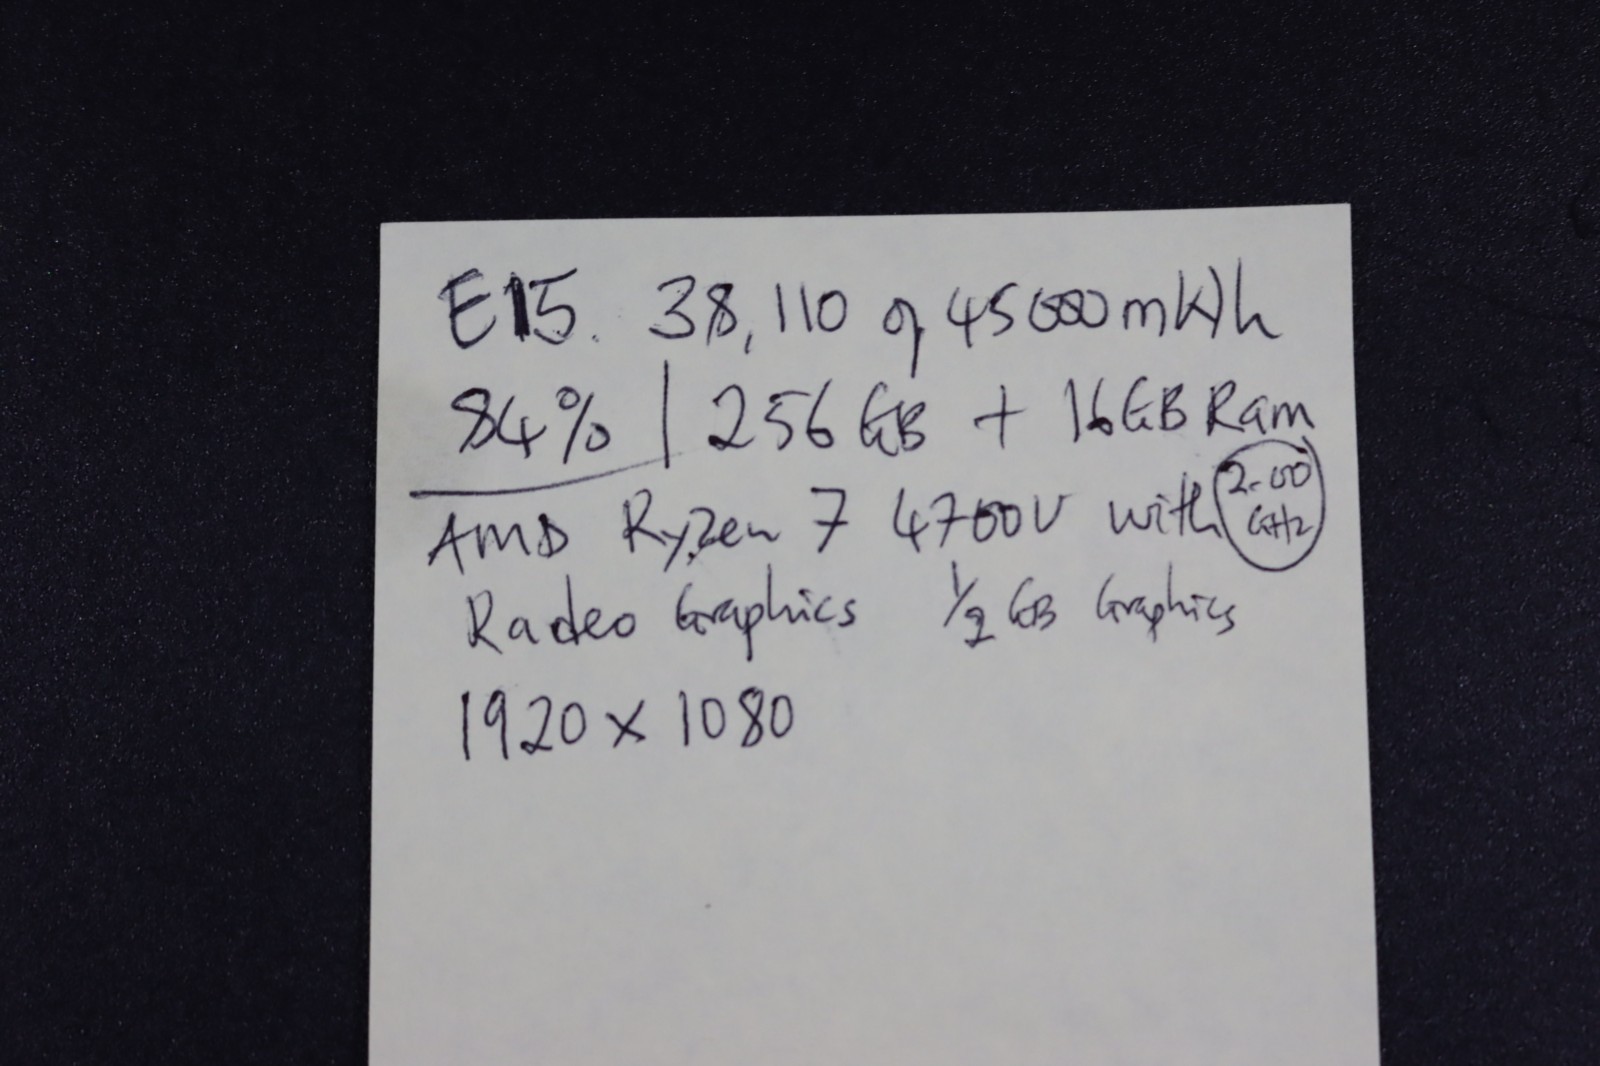 E15. 38,110 of 45000 mWh
84% | 256 GB + 16GB Ram
AMD Ryzen 7 4700U with 2.00 GHz
Radeo Graphics 1/2 GB Graphics
1920 x 1080